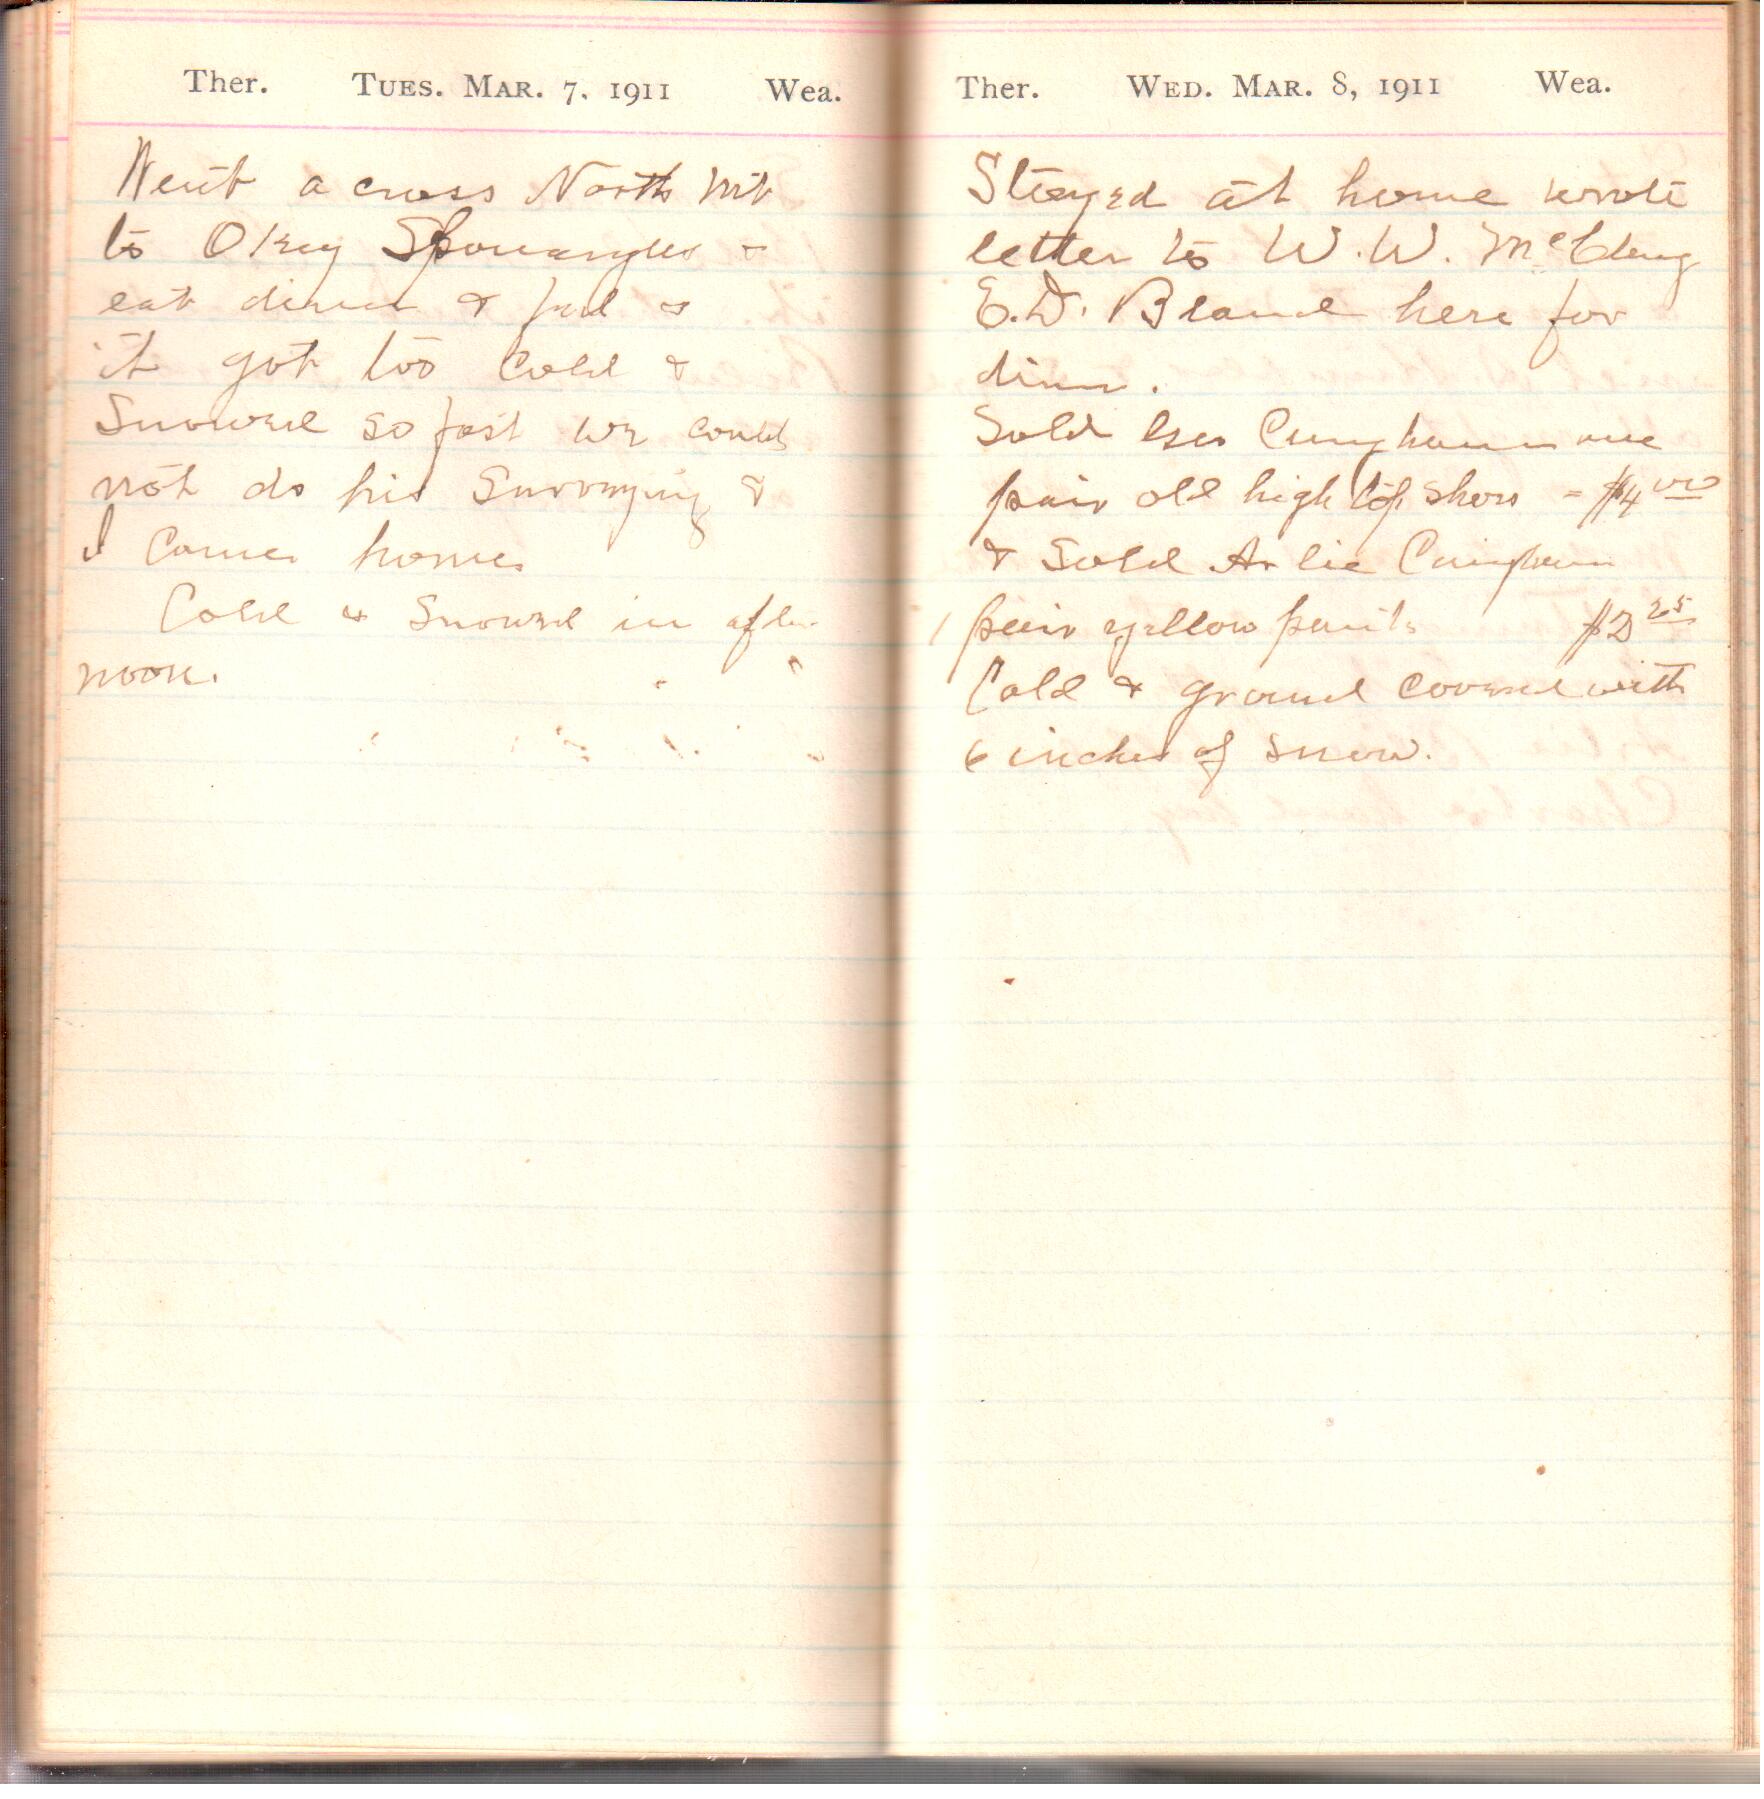 Ther. TUES. MAR. 7, 1911 Wea.
Went a cross North Mt
to Okey Sponaugles &
eat dinner & fed &
it got too Cold &
Snowed so fast we could
not do his Surveying &
I Come home
Cold & Snowed in after
noon.
Ther. WED. MAR. 8, 1911 Wea.
Stayed at home wrote
letter to W. W. McClung
E. D. Bland here for
dinn.
Sold Cungham one
pair old high top shoes = $4.00
& Sold Arlie Cungham
1 pair yellow pants $2.25
Cold & ground covered with
6 inches of snow.